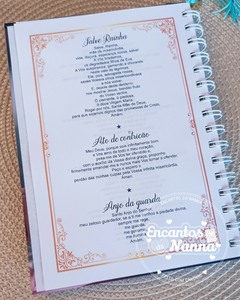 Salve Rainha
Salve, Rainha,
mãe de misericórdia,
vida, doçura, esperança nossa, salve!
A Vós bradamos,
os degredados filhos de Eva.
A Vós suspiramos, gemendo e chorando
neste vale de lágrimas.
Eia, pois, advogada nossa,
esses Vossos olhos misericordiosos
a nós volvei.
E, depois deste desterro,
nos mostrai Jesus, bendito fruto
do Vosso ventre.
Ó clemente, ó piedosa,
ó doce Virgem Maria.
Rogai por nós, Santa Mãe de Deus,
para que sejamos dignos das promessas de Cristo.
Amém.
Ato de contrição
Meu Deus, porque sois infinitamente bom
e Vos amo de todo o meu coração,
pesa-me de Vos ter ofendido e,
com o auxílio da Vossa divina graça, proponho
firmemente emendar-me e nunca mais Vos tornar a ofender.
Peço e espero o
perdão das minhas culpas pela Vossa infinita misericórdia.
Amém.
Anjo da guarda
Santo Anjo do Senhor,
meu zeloso guardador, se a ti me confiou a piedade divina,
sempre me rege,
me guarde,
me governe,
Amém.
Encantos
da
Nanna